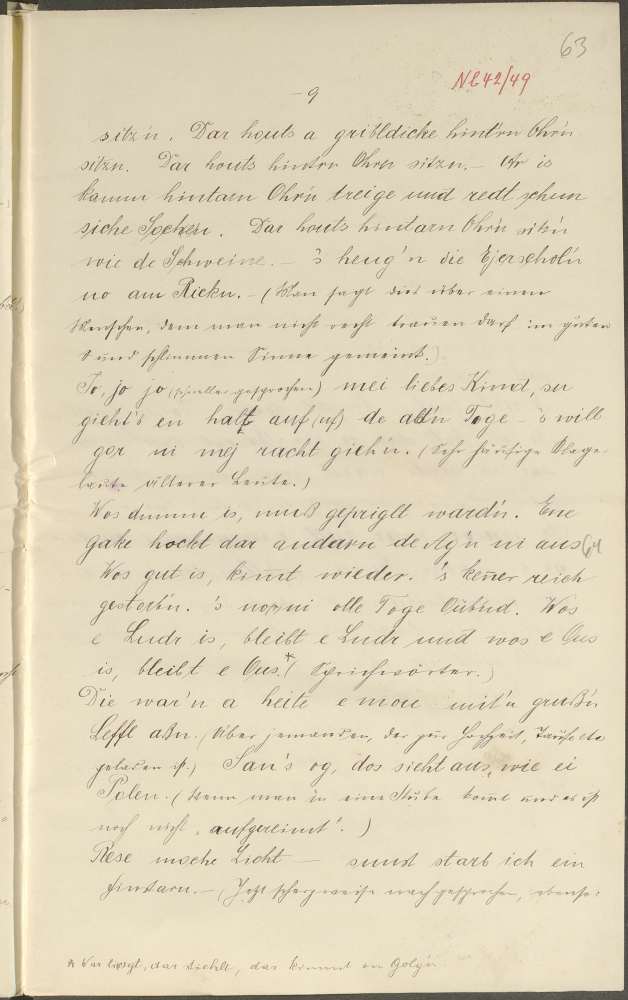 63
N642/49
- 9
sitz'n. Dar houts a gribldicke hint'rn Ohr'n
sitzn. Dar houts hintrn Ohrn sitzn. - Ar is
kamm hintarn Ohr'n treige und redt schun
siche Sachen. Dar houts hintarn Ohr'n sitz'n
wie de Schweine. - 's heng'n die Ejerschol'n
no am Rickn. - (Man sagt dies über einen
Menschen, dem man nicht recht trauen darf im guten
und schlimmen Sinne gemeint.)
Jo, jo jo (schneller gesprochen) mei liebes Kind, su
gieht's en halt auf (uf) de alt'n Toge - 's will
gor ni mej racht gieh'n. (Sehr häufige Klage-
laute älterer Leute.)
Wos dumm is, muß geprigelt ward'n. Ene
Gake hockt dar andarn de Ag'n ni aus 64
Wos gut is, kimt wieder. 's keñer reich
gestorb'n. 's no ni olle Toge Oub'nd. Wos
e Ludr is, bleibt e Ludr und wos e Aas
is, bleibt e Aas.* (Sprichwörter.)
Die war'n a heite e mou mit'n gruß'n
Leffl aßn. (Über jemanden, der zur Hochzeit, Taufe etc
geladen ist.) Sau's og, dos sieht aus, wie ei
Polen. (Wenn man in eine Stube komt und es ist
noch nicht "aufgereimt".)
Rese moche Licht - sunst starb ich ein
finstarn. - (Jetzt scherzweise nachgesprochen, ebenso:
* War liegt, dar stiehlt, dar kimmt on Golg'n